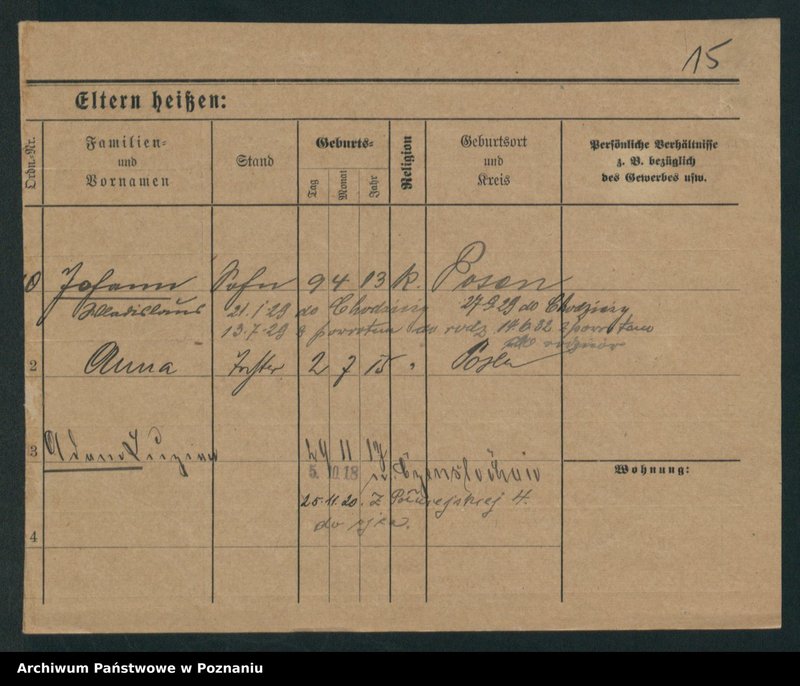 15
Eltern heißen:
Ordn.-Nr.
Familien- und Vornamen
Stand
Geburts-
Tag
Monat
Jahr
Religion
Geburtsort und Kreis
Persönliche Verhältnisse z. B. bezüglich des Gewerbes usw.
Johann Sohn 9 4 13 k. Posen
Wladislaus 21.1.29 do Chodzieży 27.9.29 do Chodzieży
13.7.29 z powrotem do rodz. 14.6.32 z powrotem
do rodziców
2 Anna Tochter 2 7 15 " Posen
3 Adam Luzian 29 11 17
5. 10 18
Wohnung:
25.11.20. z 4.
do ojca.
4
Archiwum Państwowe w Poznaniu